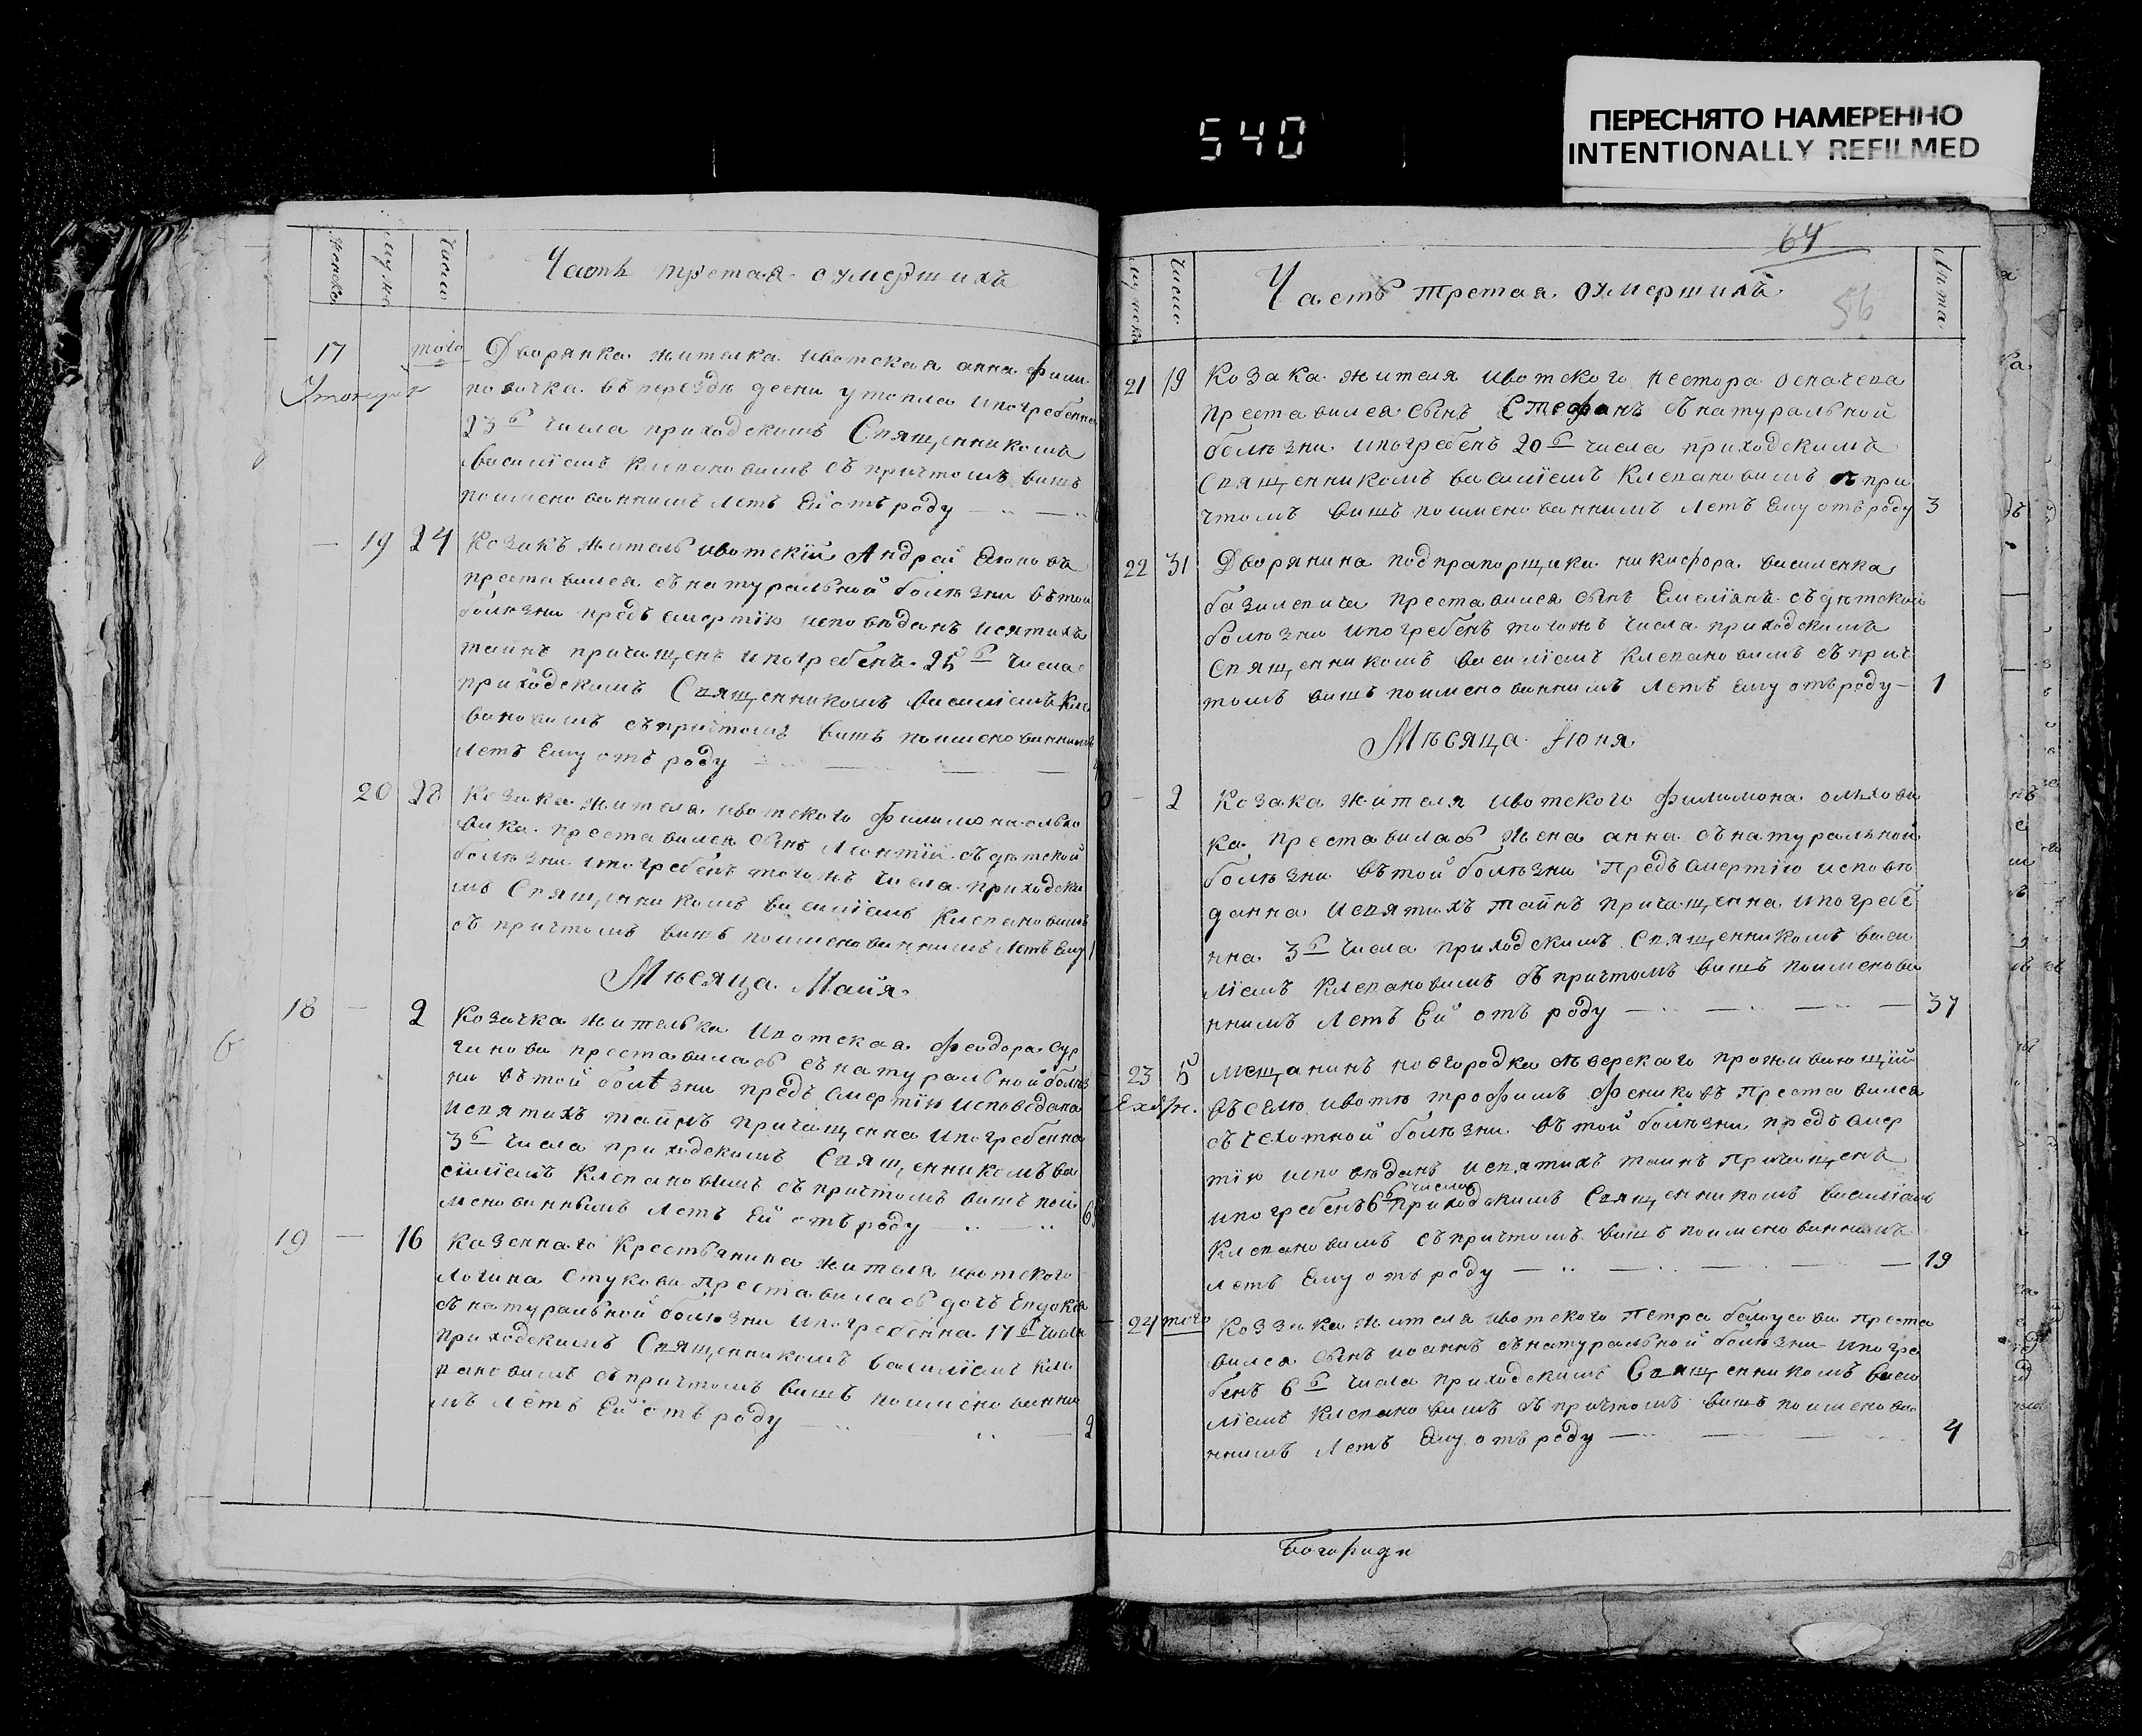 540
ПЕРЕСНЯТО НАМЕРЕННО
INTENTIONALLY REFILMED
Число
Часть третая оумершихъ
17 того Дворянка жителка ивотская анна
въ перездѣ десни утопла ипогребенна
23го числа приходскимъ Священникомъ
василіемъ Клепановимъ съ причтомъ вишъ
поименованнимъ Летъ Ей отъ роду
19 24 Козакъ житель ивотскій Андрей
преставился съ натуральной болѣзни вътой
болѣзни предъ смертію исповѣданъ исвятихъ
таинъ причащенъ ипогребенъ 25го числа
приходскимъ Священникомъ василіемъ Кле
пановимъ съпричтомъ вишъ поименованнимъ
Летъ Ему отъ роду
20 28 Козака жителя ивотского Филимона
преставился сынъ Леонтій съ дѣтской
болѣзни ипогребенъ тогожъ числа приходски
мъ Священникомъ василіемъ Клепановимъ
съ причтомъ вишъ поименованнимъ Летъ Ему 1
Мѣсяца Майя
18 — 2 Козачка жителька Ивотская Феодора Сур
гинова преставилась съ натуральной болѣз
ни вътой болѣзни предъ смертію исповедана
исвятихъ таинъ причащенна ипогребенна
3го числа приходскимъ Священникомъ ва
силіемъ Клепановимъ съ причтомъ вишъ пои
менованнымъ Летъ Ей отъ роду
19 — 16 Казенного Крестьянина жителя ивотского
Логина Стукова Преставилась дочь Евдокія
съ натуральной болѣзни ипогребенна 17го числа
приходскимъ Священникомъ василіемъ Кле
пановимъ съ причтомъ вишъ поименованни
мъ Летъ Ей отъ роду 2
64
56
Число Часть третая оумершихъ Лѣта
21 19 Козака жителя ивотского нестора осначева
преставился сынъ Стефанъ съ натуральной
болѣзни ипогребенъ 20го числа приходскимъ
Священникомъ василіемъ Клепановимъ съ при
чтомъ вишъ поименованнимъ Летъ Ему отъ роду 3
22 31 Дворянина подпрапорщика никифора василенка
преставился сынъ Емеліянъ съ дѣтской
болѣзни ипогребенъ тогожъ числа приходскимъ
Священникомъ василіемъ Клепановимъ съ прич
томъ вишъ поименованнимъ Летъ Ему отъ роду — 1
Мѣсяца Іюня
— 2 Козака жителя ивотского филимона ольхови
ка преставилась жена анна съ натуральной
болѣзни вътой болѣзни предъ смертію исповѣ
данна исвятихъ таинъ причащенна ипогребе
нна 3го числа приходскимъ Священникомъ васи
ліемъ Клепановимъ съ причтомъ вишъ поименова
ннимъ Летъ Ей отъ роду 37
23 5 Мещанинъ новгородка сѣверского проживающій
въ селѣ ивотѣ трофимъ Фениковъ Преставился
съ чехотной болѣзни вътой болѣзни предъ смер
тію исповѣданъ исвятихъ таинъ причащенъ
ипогребенъ 6го числа приходскимъ Священникомъ василіемъ
Клепановимъ съ причтомъ вишъ поименованнимъ
Летъ Ему отъ роду 19
24 того Козака жителя ивотского Петра белоусова преста
вился сынъ иоаннъ съ натуральной болѣзни ипогре
бенъ 6го числа приходскимъ Священникомъ васи
ліемъ Клепановимъ съ причтомъ вишъ поименова
ннимъ Летъ Ему отъ роду 4